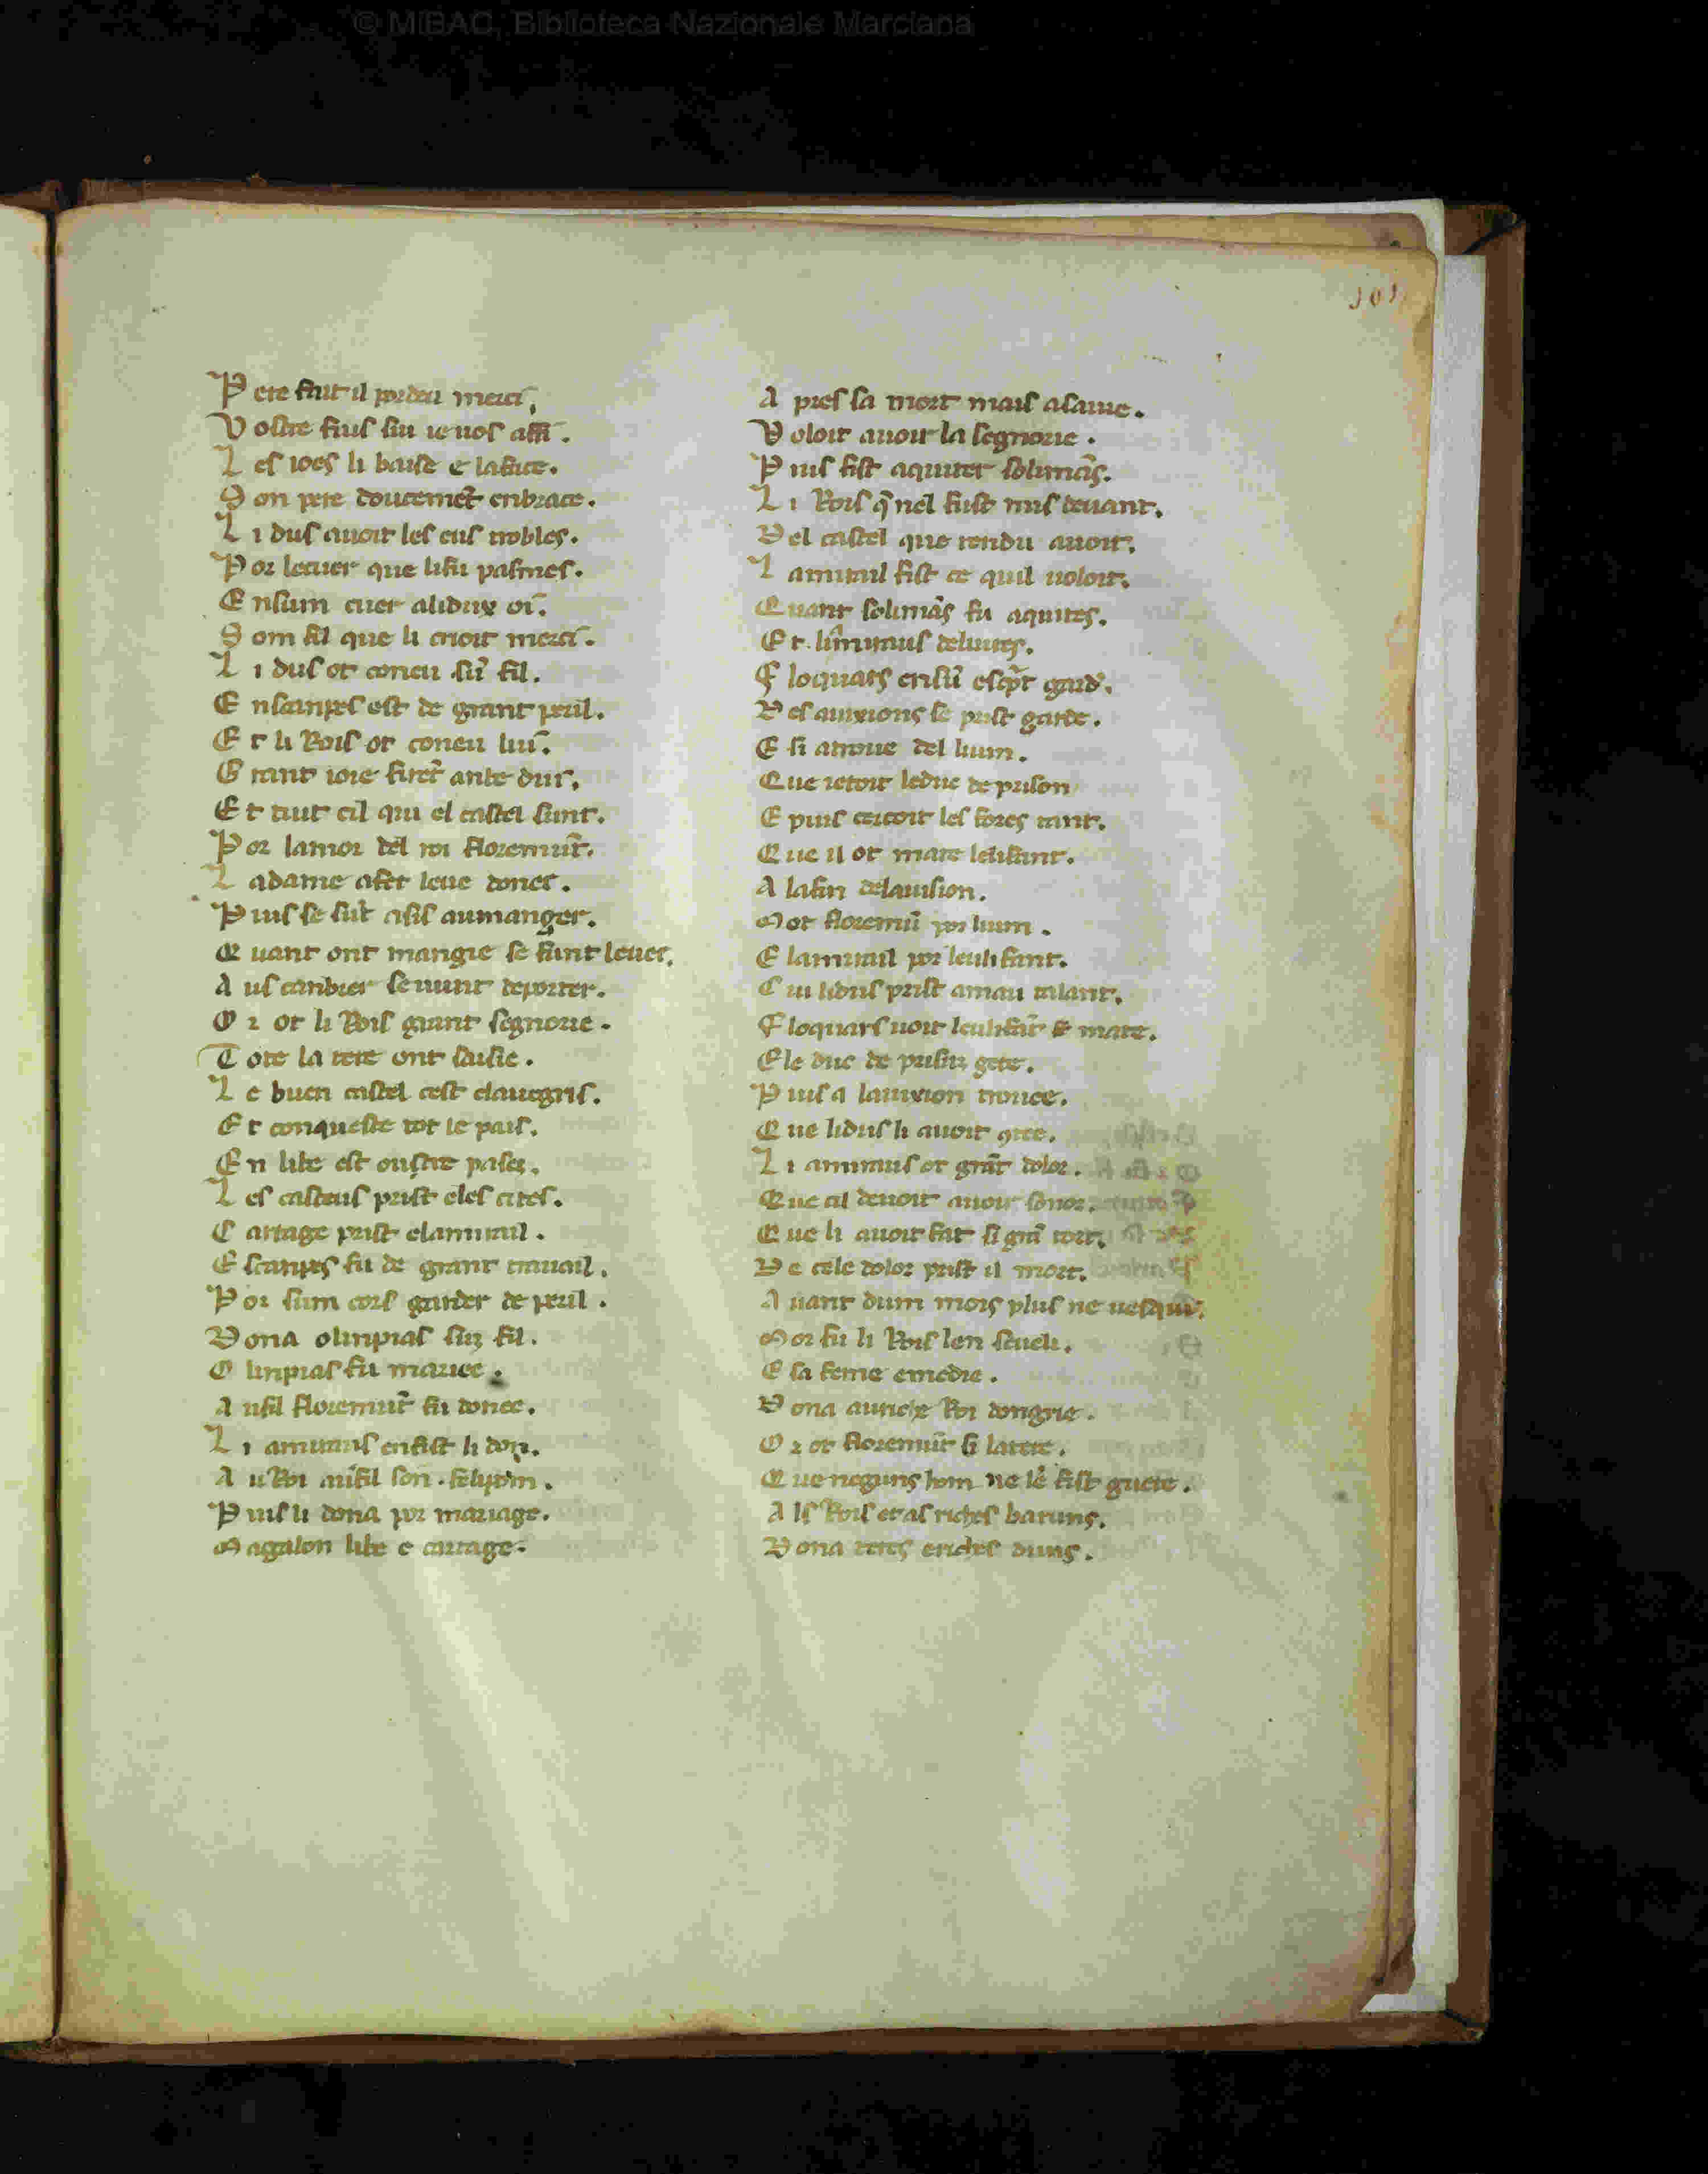 © MiBAC, Biblioteca Nazionale Marciana
101
P ere fait il por deu merci,
V ostre fius sui ie uos affi.
L es ioes li baise e la face.
S on pere doucemēt enbrace.
L i dus auoit les eus trobles.
P or le cuer que li fu pasmes.
E n sum cuer a li dux oi.
S om fil que li crioit merci.
L i dus ot coneu sū fil.
E nscanpes est de grant peril.
E t li Rois ot coneu lui.
G rant ioie firēt ante dui.
E t tuit cil qui el castel sunt.
P or lamor del roi floremūt.
L a dame a fet leue doner.
P uis se sūt asis au manger.
Q uant ont mangie se sunt leuer.
A us canbrer se uunt deporter.
O r ot li Rois grant segnorie.
T ote la tere ont saisie.
L e buen castel cest clauegris.
E t conqueste tot le pais.
E n libe est oustre pases.
L es casteus prist e les cites.
C artage prist e lamirail.
E scanpes fu de grant trauail.
P or sum cors garder de peril.
D ona olinpias sun fil.
O linpias fu mariee.
A u fil floremūt fu donee.
L i amiraus en fist li don.
A u Roi au fil son. felipom.
P uis li dona por mariage.
M agalon libe e cartage.
A pres sa mort mais a sa uie.
V oloit auoir la segnorie.
P uis fist aquiter solimās.
L i Rois q̄ nel fust mis deuant.
D el castel que rendu auoit.
L amirail fist ce quil uoloit.
Q uant solimās fu aquites.
E t li amiraus deliures.
F loquars en sū garde.
D es auixions se prist garde.
E si atroue del lium.
Q ue ietoit le duc de prison
E puis cercoit les fores tant.
Q ue il ot mate lelifant.
A la fin de lauision.
M ot floremū por lium.
E lamirail por leulifant.
C ui li dus prist amau talant.
F loquars uoit leulifāt mate.
E le duc de prisun gete.
P uis a lauixion trouee.
Q ue li dus li auoit ɔtee.
L i amiraus ot grāt dolor.
Q ue cil deuoit auoir sonor.
Q ue li auoit fat si grā tort.
D e cele dolor prist il mort.
A uant dum mois plus ne uesqui.
M or fu li Rois len seueli.
E sa feme emedie.
D ona au riche Roi dongrie.
O r ot floremūt si la tere.
Q ue neguns hom ne le fist guere.
A ls Rois et as riches baruns.
D ona teres e riches duns.